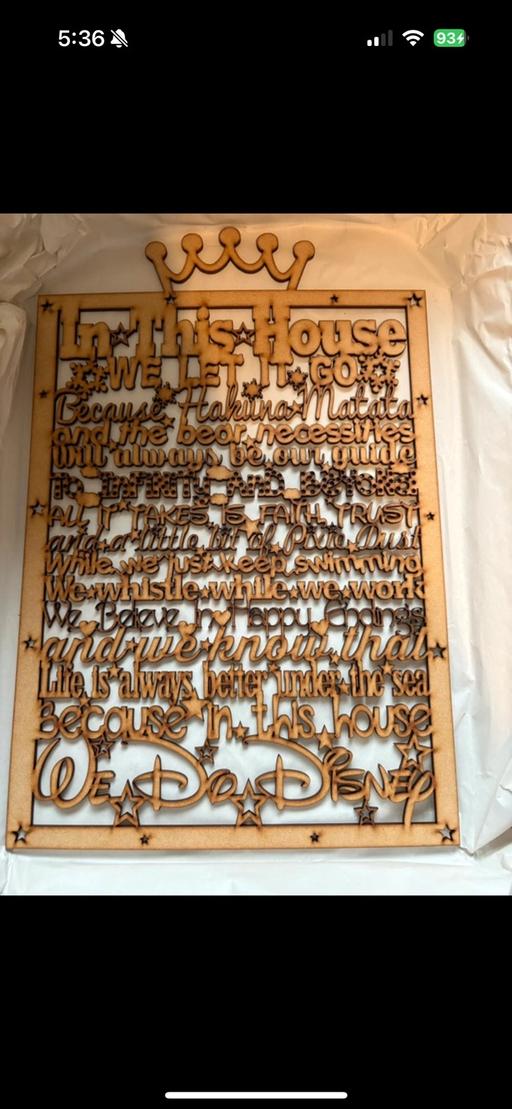 5:36
93
In This House
WE LET IT GO
Because Hakuna Matata
and the bear necessities
will always be our guide
TO INFINITY AND BEYOND!
ALL IT TAKES IS FAITH, TRUST
and a little bit of Pixie Dust
While we just keep swimming
We whistle while we work
We Believe in Happy Endings
and we know that
Life is always better under the sea
Because in this house
We Do Disney